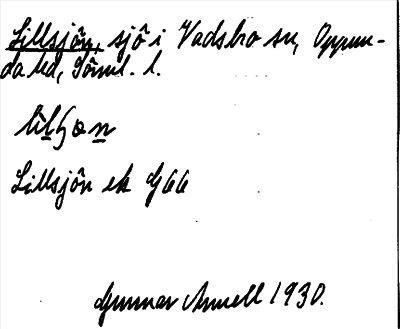 Lillsjön, sjö i Vadsbro sn, Oppun-
da hd, Söml. l.
Lillsjön ek G66
Gunnar Amell 1930.